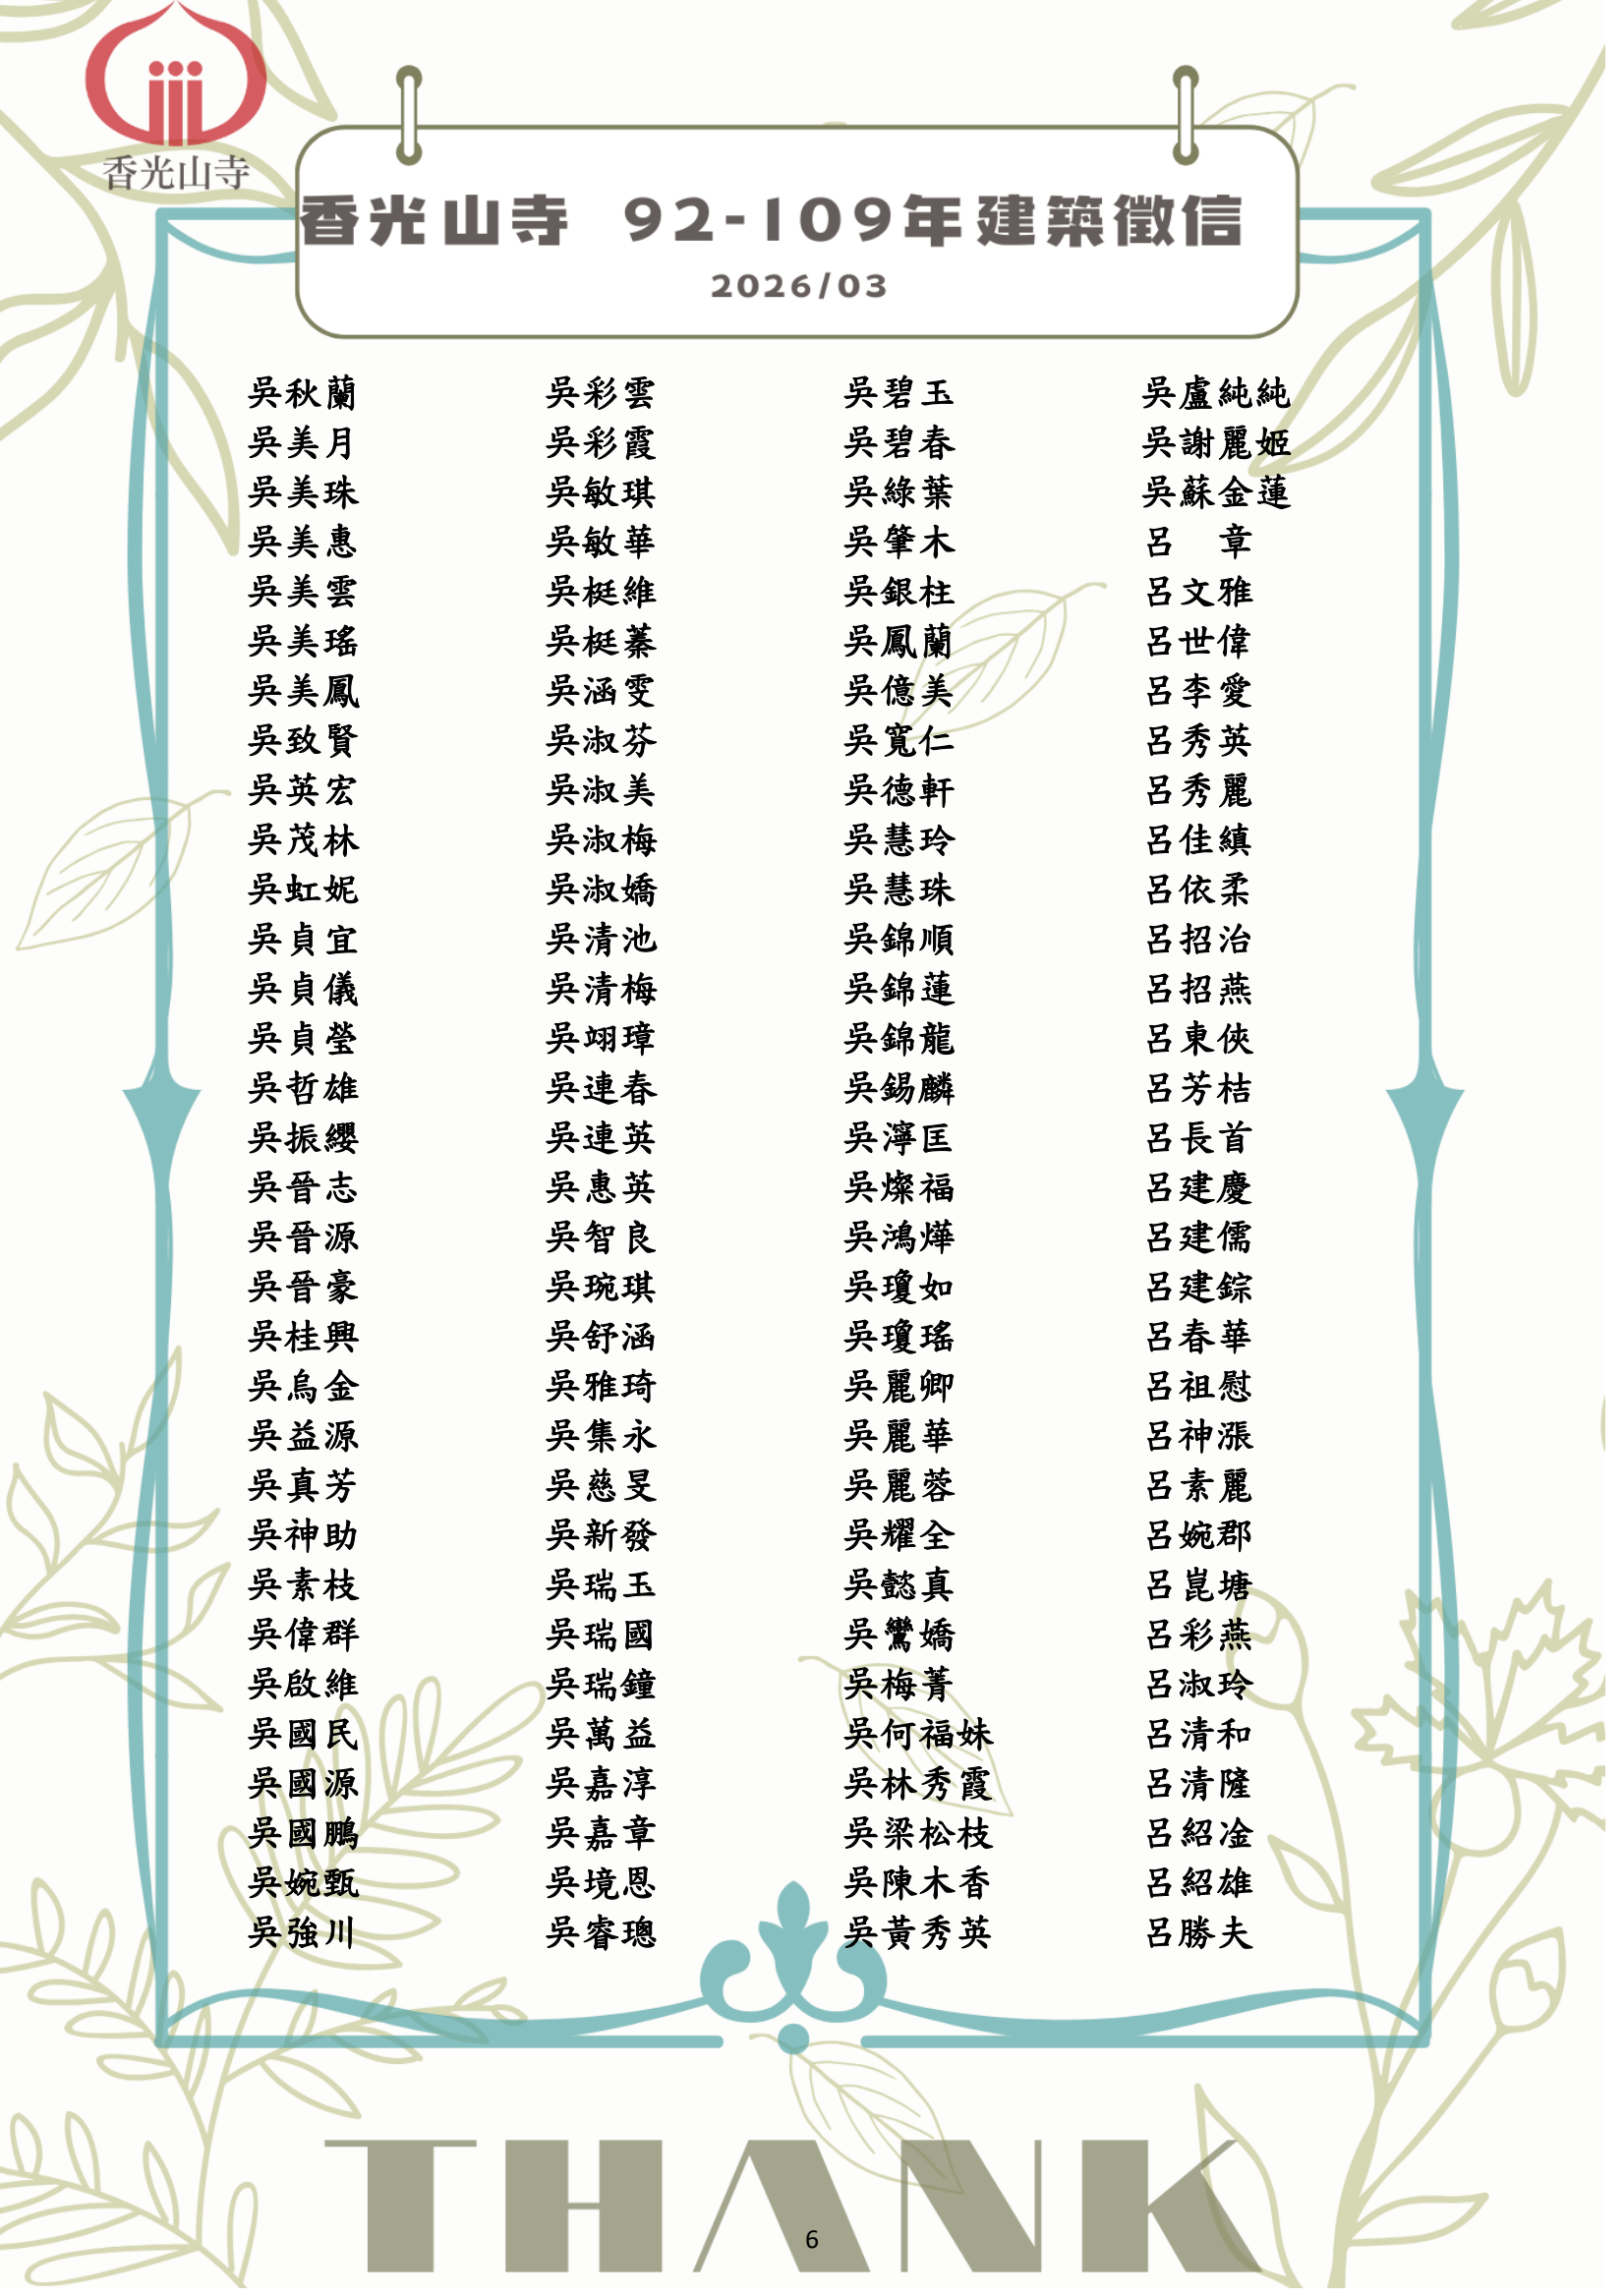 香光山寺
香光山寺 92-109年建築徵信
2026/03
吳秋蘭 吳彩雲 吳碧玉 吳盧純純
吳美月 吳彩霞 吳碧春 吳謝麗姬
吳美珠 吳敏琪 吳綠葉 吳蘇金蓮
吳美惠 吳敏華 吳肇木 呂　章
吳美雲 吳梃維 吳銀柱 呂文雅
吳美瑤 吳梃蓁 吳鳳蘭 呂世偉
吳美鳳 吳涵雯 吳億美 呂李愛
吳致賢 吳淑芬 吳寬仁 呂秀英
吳英宏 吳淑美 吳德軒 呂秀麗
吳茂林 吳淑梅 吳慧玲 呂佳縝
吳虹妮 吳淑嬌 吳慧珠 呂依柔
吳貞宜 吳清池 吳錦順 呂招治
吳貞儀 吳清梅 吳錦蓮 呂招燕
吳貞瑩 吳翊璋 吳錦龍 呂東俠
吳哲雄 吳連春 吳錫麟 呂芳桔
吳振纓 吳連英 吳濘匡 呂長首
吳晉志 吳惠英 吳燦福 呂建慶
吳晉源 吳智良 吳鴻燁 呂建儒
吳晉豪 吳琬琪 吳瓊如 呂建錝
吳桂興 吳舒涵 吳瓊瑤 呂春華
吳烏金 吳雅琦 吳麗卿 呂祖慰
吳益源 吳集永 吳麗華 呂神漲
吳真芳 吳慈旻 吳麗蓉 呂素麗
吳神助 吳新發 吳耀全 呂婉郡
吳素枝 吳瑞玉 吳懿真 呂崑塘
吳偉群 吳瑞國 吳鸞嬌 呂彩燕
吳啟維 吳瑞鐘 吳梅菁 呂淑玲
吳國民 吳萬益 吳何福妹 呂清和
吳國源 吳嘉淳 吳林秀霞 呂清隆
吳國鵬 吳嘉章 吳梁松枝 呂紹淦
吳婉甄 吳境恩 吳陳木香 呂紹雄
吳強川 吳睿璁 吳黃秀英 呂勝夫
THANK
6